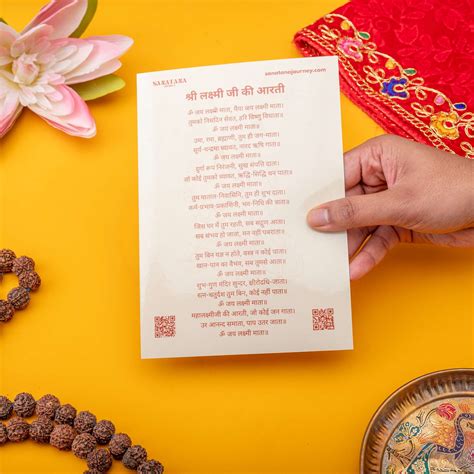 SANATANA
sanatanajourney.com
श्री लक्ष्मी जी की आरती
ॐ जय लक्ष्मी माता, मैया जय लक्ष्मी माता।
तुमको निशदिन सेवत, हरि विष्णु विधाता॥
ॐ जय लक्ष्मी माता॥
उमा, रमा, ब्रह्माणी, तुम ही जग-माता।
सूर्य-चन्द्रमा ध्यावत, नारद ऋषि गाता॥
ॐ जय लक्ष्मी माता॥
दुर्गा रूप निरंजनी, सुख सम्पत्ति दाता।
जो कोई तुमको ध्यावत, ऋद्धि-सिद्धि धन पाता॥
ॐ जय लक्ष्मी माता॥
तुम पाताल-निवासिनि, तुम ही शुभदाता।
कर्म-प्रभाव-प्रकाशिनी, भव-निधि की त्राता॥
ॐ जय लक्ष्मी माता॥
जिस घर में तुम रहती, सब सद्गुण आता।
सब संभव हो जाता, मन नहीं घबराता॥
ॐ जय लक्ष्मी माता॥
तुम बिन यज्ञ न होते, वस्त्र न कोई पाता।
खान-पान का वैभव, सब तुमसे आता॥
ॐ जय लक्ष्मी माता॥
शुभ-गुण मंदिर सुन्दर, क्षीरोदधि-जाता।
रत्न-चतुर्दश तुम बिन, कोई नहीं पाता॥
ॐ जय लक्ष्मी माता॥
महालक्ष्मीजी की आरती, जो कोई जन गाता।
उर आनन्द समाता, पाप उतर जाता॥
ॐ जय लक्ष्मी माता॥